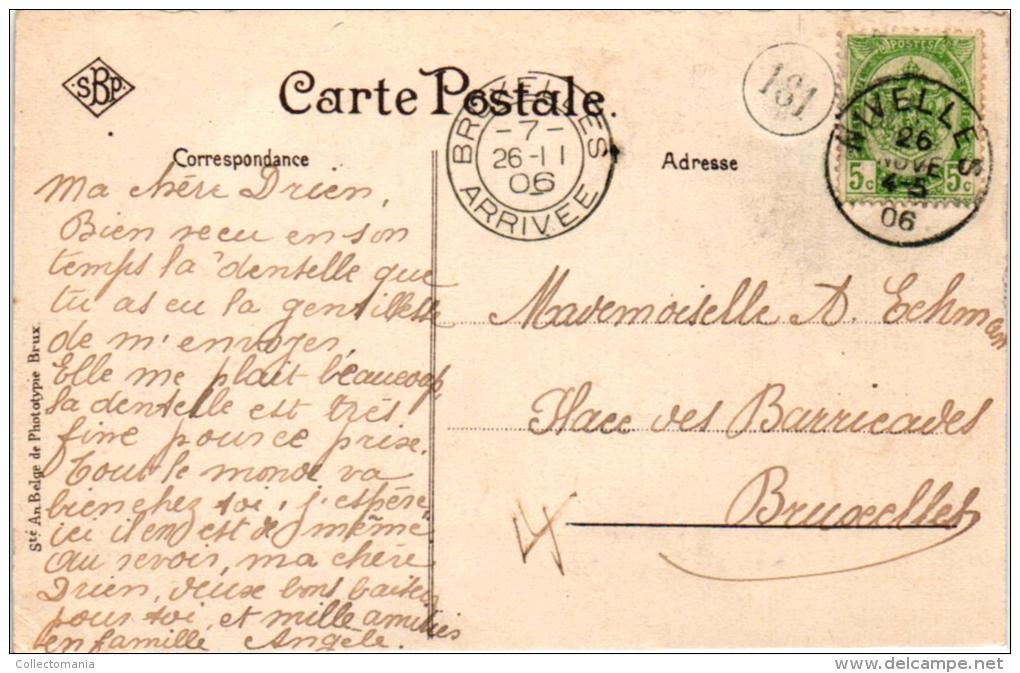 SBP
Carte Postale.
BRUXELLES
-7-
26-11
06
ARRIVEE
181
POSTES
5c 5c
NIVELLES
26
NOVE
4-5
06
Correspondance
Adresse
Ma chère Drien,
Bien recu en son
temps la dentelle que
tu as eu la gentillesse
de m'envoyer,
Elle me plait beaucoup,
la dentelle est très
fine pour ce prix.
Tout le monde va
bien chez toi, j'espère,
ici il en est de même
Au revoir, ma chère
Drien, deux bons baisers
pour toi, et mille amitiés
en famille Angèle.
Mademoiselle D. Eckman
Place des Barricades
Bruxelles
Sté An. Belge de Phototypie Brux.
Collectomania
delcampe.net